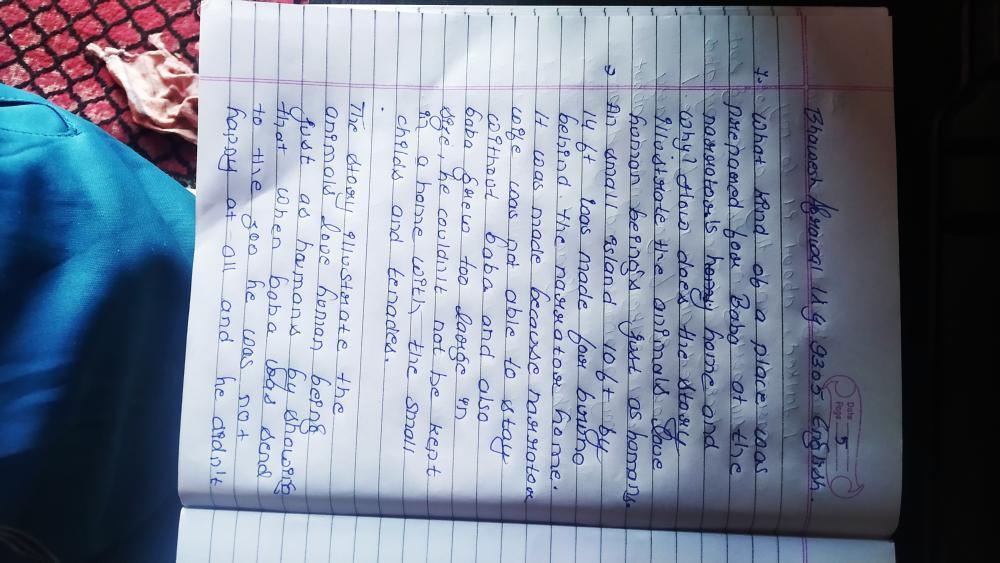 Date
Page 5
Bhawesh 11 9305 English.
7. What kind of a place was
prepared for Baba at the
narrator's home and
why? How does the story
illustrate the animals love
homan beings just as homans.
An small island 10 ft by
14 ft was made for
behind the narrator home.
It was made because narrator
wife was not able to stay
without baba and also
baba grew too large in
size, he couldn't not be kept
in a home with the small
childs and tenades.
The story illustrate the
animals love homan being
just as hamans by showing
that when baba was send
to the zoo he was not
happy at all and he didn't